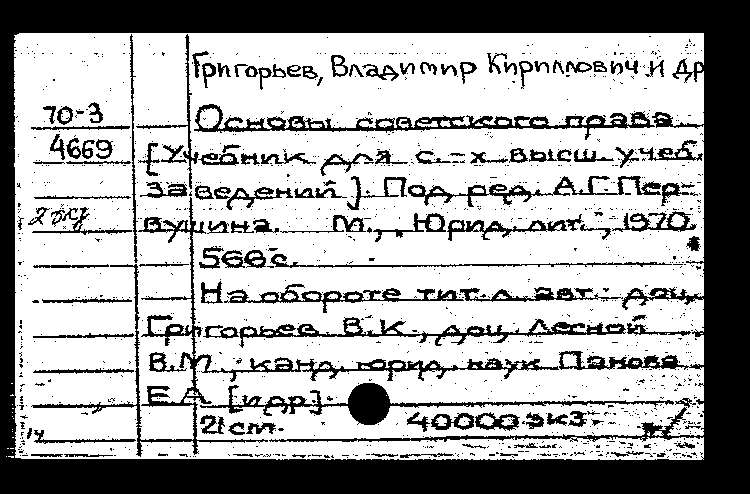 Григорьев, Владимир Кириллович и др
70-3
Основы советского права
4669
[Учебник для с.-х высш. учеб.
заведений]. Под ред. А.Г. Пер-
2 экз
вушина. М., "Юрид. лит.", 1970.
566 с.
На обороте тит. л. авт.: доц.
Григорьев В.К., доц. Лесной
В.М., канд. юрид. наук Панова
Е.А [и др].
21 cm. 40000 экз.
14